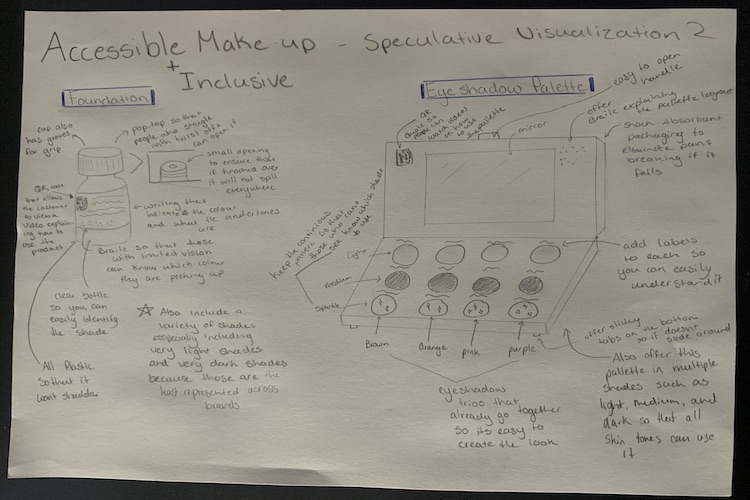 Accessible Make-up - Speculative Visualization 2
+
Inclusive
Foundation
cap also
has grooves
for grip
pop tap so that
people who struggle
with twist offs
can open it
small opening
to ensure that
if knocked over
it will not spill
everywhere
QR code
that allows
the customer
to view a
video explain
ing how to
use the
product
writing that
indicates the colour
and what the undertones
are
Braile so that those
with limited vision
can know which colour
they are picking up
clear bottle
so you can
easily identify
the shade
All Plastic
so that it
won't shadder
☆ Also include a
variety of shades
especially including
very light shades
and very dark shades
because those are the
least represented across
brands
Eyeshadow Palette
QR
people can
watch videos
on how
to use
the pallette
mirror
easy to open
handle
offer
Braile explaining
the pallette layout
shock Absorbant
packaging to
eliminate pans
breaking if it
falls
Keep the continious
pattern so that
those who can't
see know which shade
to use
Light
medium
Sparkle
Brown
Orange
pink
purple
eyeshadow
trios that
already go together
so its easy to
create the look
add labels
to each so
you can easily
understand it
offer sticky
tabs on the bottom
so it doesn't
slide around
Also offer this
pallette in multiple
shades such as
light, medium, and
dark so that all
skin tones can use
it